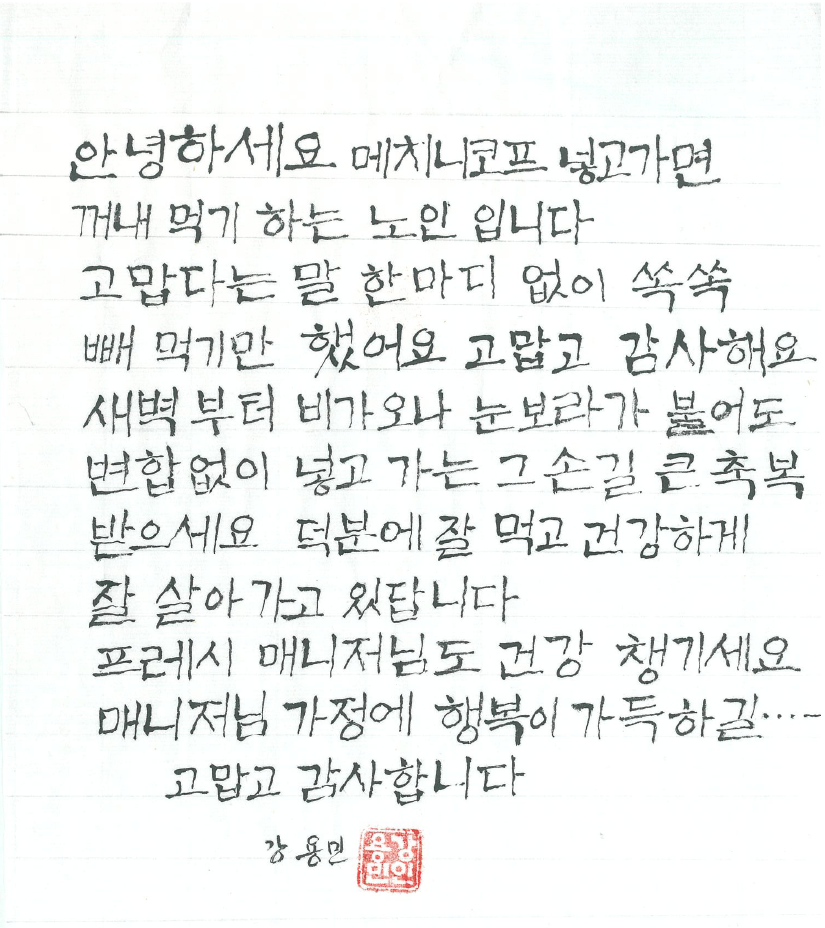 안녕하세요 메치니코프 넣고가면
꺼내 먹기 하는 노인 입니다
고맙다는 말 한마디 없이 쏙쏙
빼 먹기만 했어요 고맙고 감사해요
새벽 부터 비가오나 눈보라가 불어도
변합없이 넣고 가는 그 손길 큰 축복
받으세요 덕분에 잘 먹고 건강하게
잘 살아가고 있답니다
프레시 매니저님도 건강 챙기세요
매니저님 가정에 행복이 가득하길·····
고맙고 감사합니다
강용민
강용민인